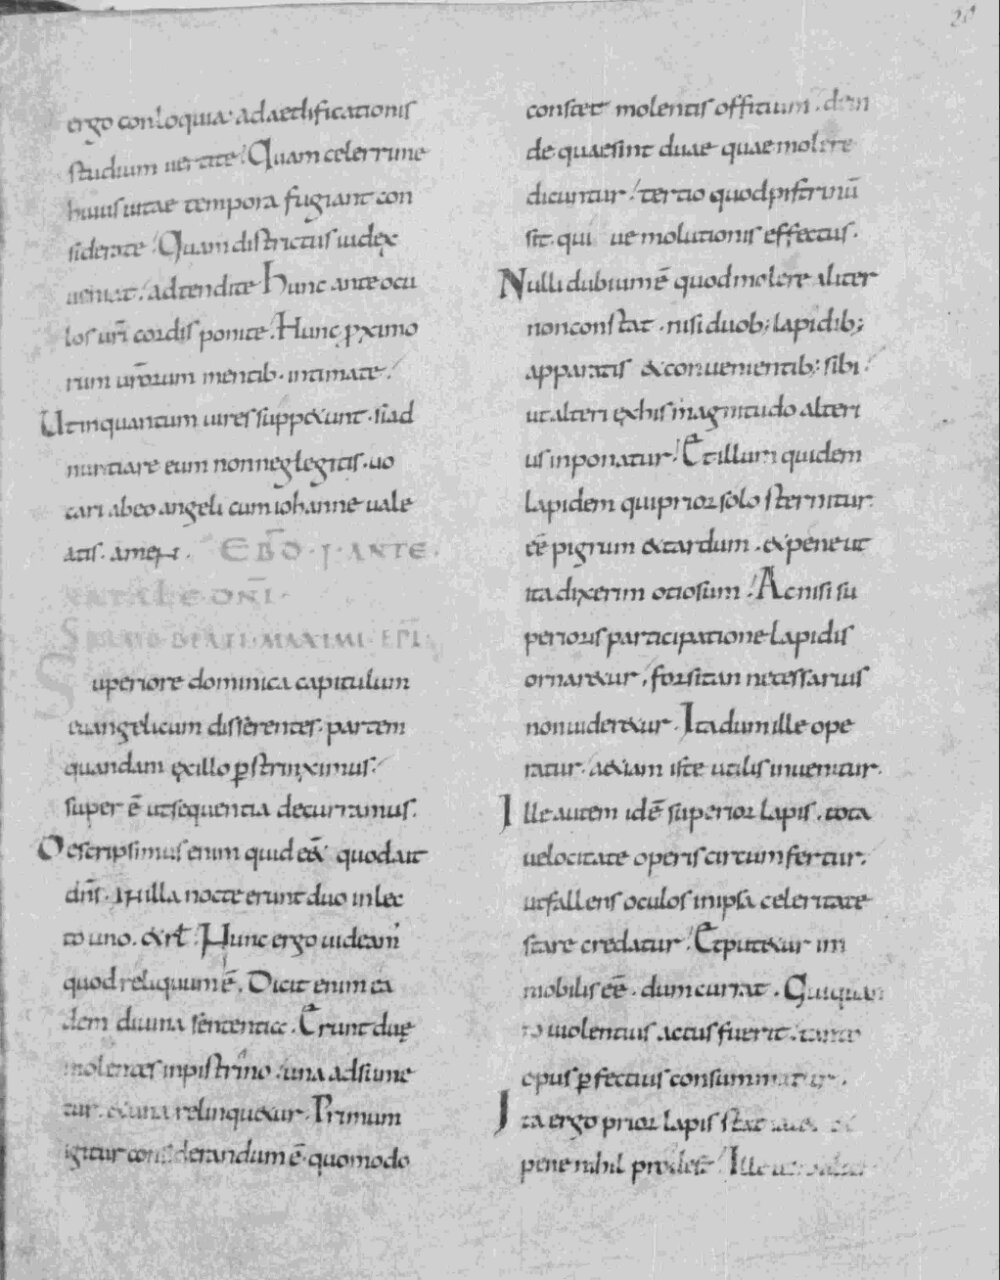 20
ergo conloquia ad aedificationis
studium uertite. Quam celerrime
huius uitae tempora fugiant con
siderate. Quam districtus iudex
ueniat. adtendite Hunc ante ocu
los uri̅ cordis ponite. Hunc ꝓximo
rum uro̅rum mentib· intimate.
Ut inquantum uires suppetunt· si ad
nuntiare eum non neglegitis. uo
cari ab eo angeli cum iohanne uale
atis. amen. EBD̅· I· ANTE·
NATALE DNI̅·
SERMO BEATI· MAXIMI· EPI̅
Superiore dominica capitulum
euangelicum disserentes. partem
quandam ex illo ꝑstrinximus.
super e̅ ut sequentia decurramus.
Descripsimus enim quid e&̅ quod ait
dn̅s. In illa nocte erunt duo in lec
to uno. &rl̅. Hunc ergo uideam'
quod reliquum e̅. Dicit enim ea
dem diuina sententia. Erunt duę
molentes in pistrino. una adsume
tur. & una relinquetur. Primum
igitur considerandum e̅· quomodo
constet molentis officium. dein
de quae sint duae quae molere
dicuntur. tertio quod pistrinu̅
sit. qui ue molutionis effectus.
Nulli dubium e̅ quod molere aliter
non constat· nisi duob; lapidib;
apparatis & conuenientib; sibi.
ut alteri ex his magnitudo alteri
us inponatur. Et illum quidem
lapidem qui prior solo sternitur.
ee̅ pigrum & tardum. & pene ut
ita dixerim otiosum. Ac nisi su
perioris participatione lapidis
ornaretur, forsitan necessarius
non uideretur. Ita dum ille ope
ratur. aetiam iste utilis inuenitur.
Ille autem ide̅ superior lapis. tota
uelocitate operis circumfertur.
ut fallens oculos in ipsa celeritate
stare credatur. Et putetur im
mobilis ee̅. dum currat. Qui quan
to uiolentius actus fuerit. tanto
opus ꝑfectius consummatur.
Ita ergo prior lapis stat
pene nihil prodest. Ille uero alter